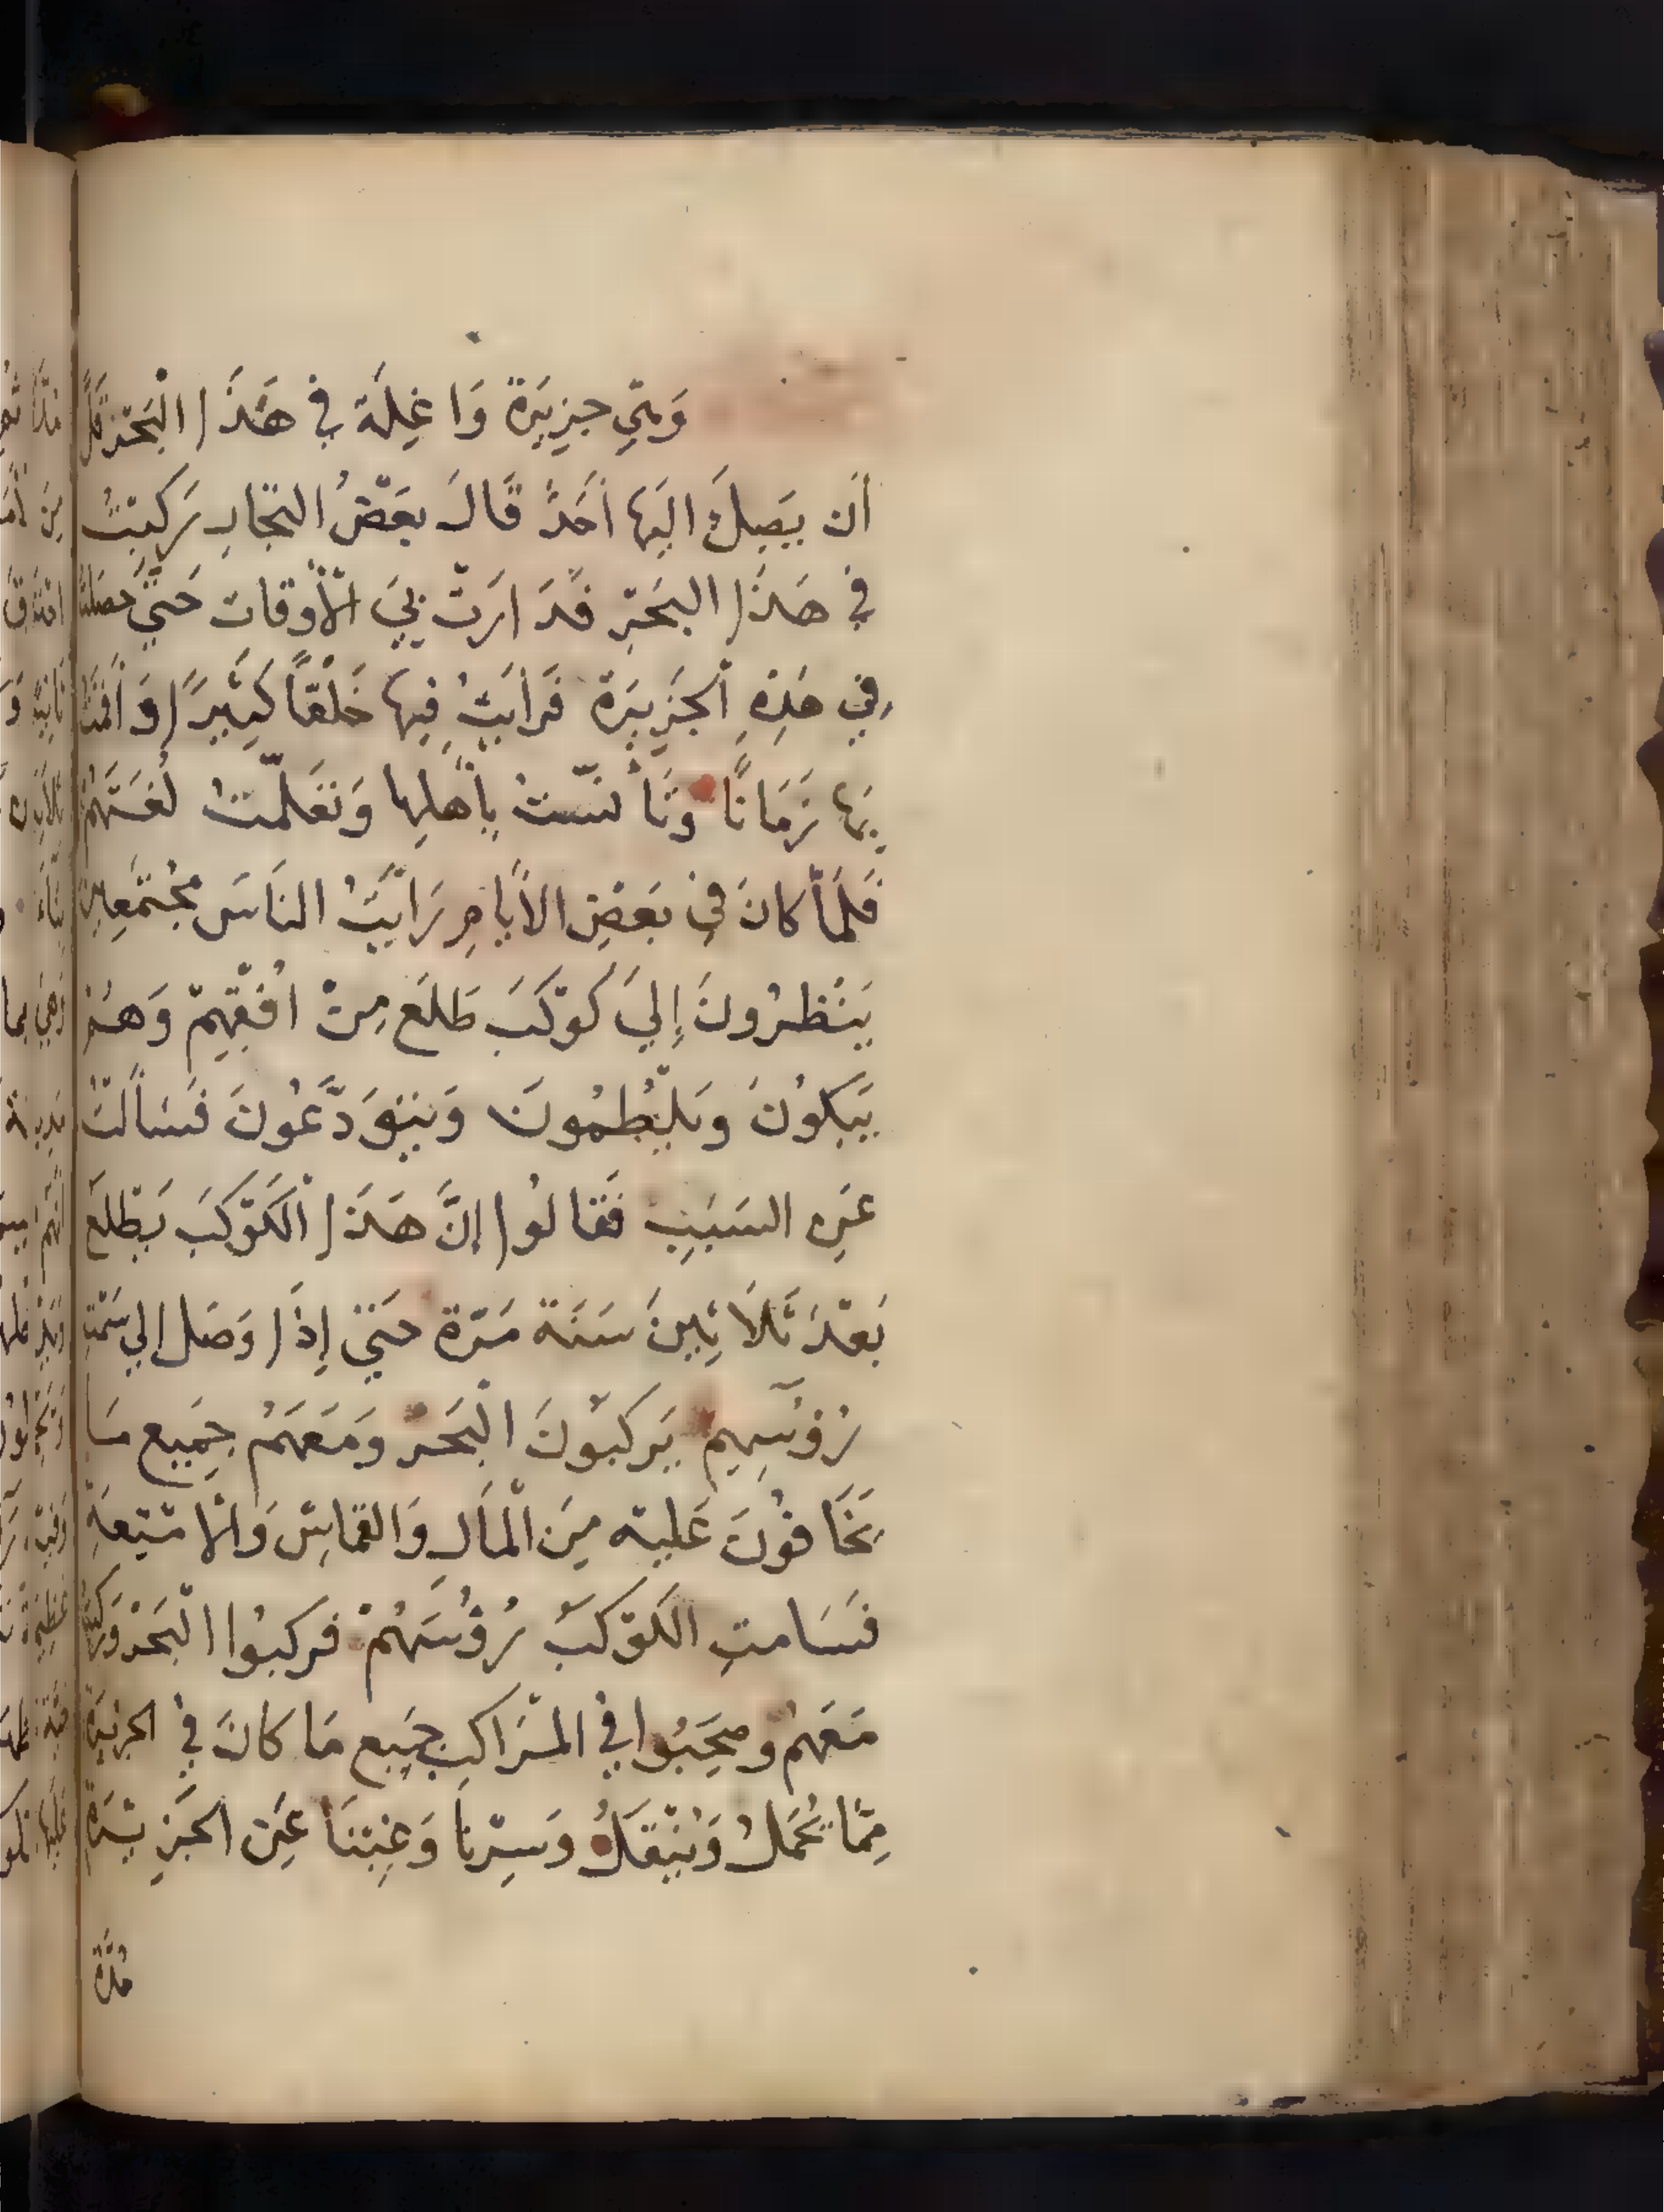 وَهِيَ جزِيَرة وَاغِلَة في هَذَا الْبَحْر قَلَّ
اَن يَصِلَ اليَها اَحَدٌ قَالَ بعَضُ التجَارِ رَكِبْتُ
في هَذَا البحَرِ فَدَارَتْ بيَ الْأوقات حَتيَّ حصَلنا
فيِ هَذِهِ الْجَزِيرَة فَرايَتُ فِيها خَلْقاً كَثِيرًا وَاَقَمْتُ
بِهَا زَمَانًا وَتَأنسّتُ بِأهَلِها وَتعَلّمتُ لُغَتَهُمْ
فَلَمَّا كانَ فيِ بَعَضِ الاَيامِ رَايَتُ النَاسَ مُجْتَمَعِين
يَنْظرُونَ إِليَ كَوْكَبَ طَلَع مِنْ اُفقِهِمْ وَهُمْ
يَبَكوُنَ ويَلْطُمُونَ وَيَتوَدَّعُونَ فَسَألَتُ
عَنِ السَبَبِ فَقَالُوا إنَّ هَذَا الْكَوْكَبَ يَطْلَعَ
بَعْدَ ثَلاَثِينَ سَنَة مَرّة حَتيّ إِذَا وَصَل إلي سَمْتِ
رُؤسِهِم يَركبُونَ الْبَحر وَمَعَهَمُ جِمَيع مَا
يَخَافوُنَ عَليَه مِنَ الْمَاَلِ وَالقمَاشِ وَالْامْتِعَةِ
فَسَامتِ الكَوْكَبُ رُؤُسَهُمْ فرَكبُوا الْبَحْرَ وَركبْتُ
مَعَهُمْ وصحَبُوا في المْرَاكِب جمَيع مَا كَانَ فيِ الجزيَرة
مِمّا يُحَمَلُ وَيُنْقَلُ وَسِرْنَا وَغِبْنَا عَنِ الجَزِيْرَة
مُدَّة